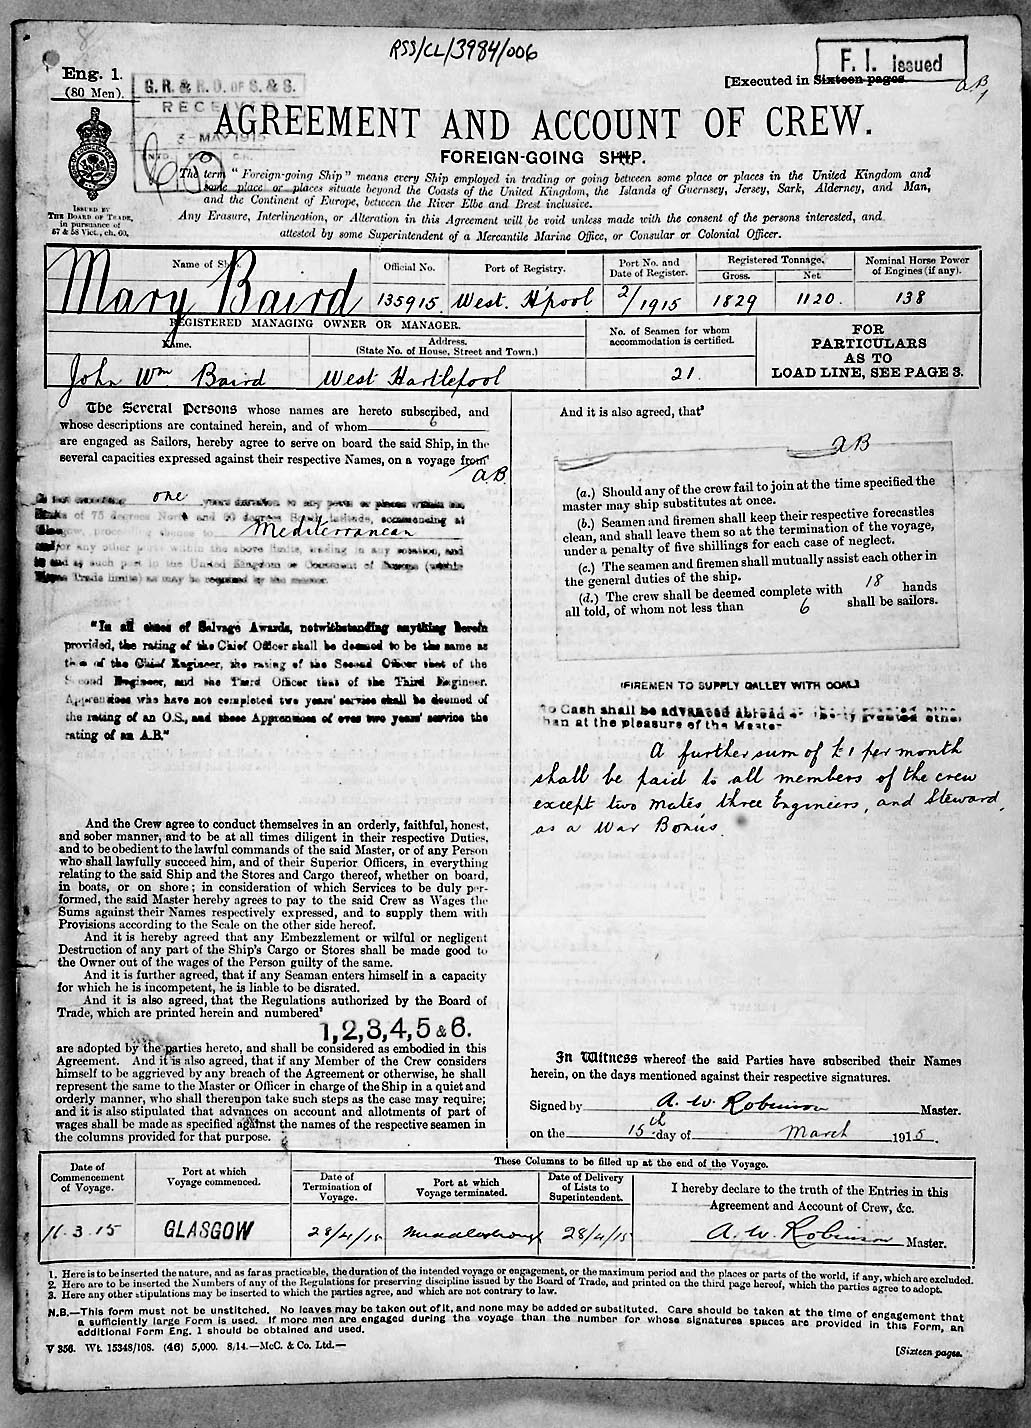 RSS/CL/3984/006
F. I. issued
Eng. 1.
(80 Men).
G. R. & R. O. OF S. & S.
RECEIVED
3 - MAY 1915
[Executed in Sixteen pages.
aB
AGREEMENT AND ACCOUNT OF CREW.
FOREIGN-GOING SHIP.
The term "Foreign-going Ship" means every Ship employed in trading or going between some place or places in the United Kingdom and
some place or places situate beyond the Coasts of the United Kingdom, the Islands of Guernsey, Jersey, Sark, Alderney, and Man,
and the Continent of Europe, between the River Elbe and Brest inclusive.
Any Erasure, Interlineation, or Alteration in this Agreement will be void unless made with the consent of the persons interested, and
attested by some Superintendent of a Mercantile Marine Office, or Consular or Colonial Officer.
ISSUED BY
THE BOARD OF TRADE,
in pursuance of
57 & 58 Vict., ch. 60.
Name of Ship.
Official No.
Port of Registry.
Port No. and
Date of Register.
Registered Tonnage.
Gross.
Net
Nominal Horse Power
of Engines (if any).
Mary Baird
135915.
West. H'pool
2/1915
1829
1120.
138
REGISTERED MANAGING OWNER OR MANAGER.
Name.
Address.
(State No. of House, Street and Town.)
No. of Seamen for whom
accommodation is certified.
FOR
PARTICULARS
AS TO
LOAD LINE, SEE PAGE 3.
John Wm Baird
West Hartlepool
21.
The Several Persons whose names are hereto subscribed, and
whose descriptions are contained herein, and of whom 6
are engaged as Sailors, hereby agree to serve on board the said Ship, in the
several capacities expressed against their respective Names, on a voyage from1
aB.
not exceeding one years duration to any ports or places within the
limits of 75 degrees North and 60 degrees South latitude, commencing at
Glasgow, proceeding thence to Mediterranean
and/or any other ports within the above limits, trading in any rotation, and
to end at such port in the United Kingdom or Continent of Europe (within
Home Trade limits) as may be required by the master.
"In all cases of Salvage Awards, notwithstanding anything herein
provided, the rating of the Chief Officer shall be deemed to be the same as
that of the Chief Engineer, the rating of the Second Officer that of the
Second Engineer, and the Third Officer that of the Third Engineer.
Apprentices who have not completed two years' service shall be deemed of
the rating of an O.S., and those Apprentices of over two years' service the
rating of an A.B."
And the Crew agree to conduct themselves in an orderly, faithful, honest,
and sober manner, and to be at all times diligent in their respective Duties,
and to be obedient to the lawful commands of the said Master, or of any Person
who shall lawfully succeed him, and of their Superior Officers, in everything
relating to the said Ship and the Stores and Cargo thereof, whether on board,
in boats, or on shore; in consideration of which Services to be duly per-
formed, the said Master hereby agrees to pay to the said Crew as Wages the
Sums against their Names respectively expressed, and to supply them with
Provisions according to the Scale on the other side hereof.
And it is hereby agreed that any Embezzlement or wilful or negligent
Destruction of any part of the Ship's Cargo or Stores shall be made good to
the Owner out of the wages of the Person guilty of the same.
And it is further agreed, that if any Seaman enters himself in a capacity
for which he is incompetent, he is liable to be disrated.
And it is also agreed, that the Regulations authorized by the Board of
Trade, which are printed herein and numbered2
1,2,3,4,5 & 6.
are adopted by the parties hereto, and shall be considered as embodied in this
Agreement. And it is also agreed, that if any Member of the Crew considers
himself to be aggrieved by any breach of the Agreement or otherwise, he shall
represent the same to the Master or Officer in charge of the Ship in a quiet and
orderly manner, who shall thereupon take such steps as the case may require;
and it is also stipulated that advances on account and allotments of part of
wages shall be made as specified against the names of the respective seamen in
the columns provided for that purpose.
And it is also agreed, that3
aB
(a.) Should any of the crew fail to join at the time specified the
master may ship substitutes at once.
(b.) Seamen and firemen shall keep their respective forecastles
clean, and shall leave them so at the termination of the voyage,
under a penalty of five shillings for each case of neglect.
(c.) The seamen and firemen shall mutually assist each other in
the general duties of the ship.
(d.) The crew shall be deemed complete with 18 hands
all told, of whom not less than 6 shall be sailors.
(FIREMEN TO SUPPLY GALLEY WITH COAL)
No Cash shall be advanced Abroad or liberty granted other
than at the pleasure of the Master
A further sum of £1 per month
shall be paid to all members of the crew
except two mates, three Engineers, and Steward,
as a War Bonus.
In Witness whereof the said Parties have subscribed their Names
herein, on the days mentioned against their respective signatures.
Signed by A. W. Robinson Master.
on the 15th day of March 1915.
Date of
Commencement
of Voyage.
Port at which
Voyage commenced.
These Columns to be filled up at the end of the Voyage.
Date of
Termination of
Voyage.
Port at which
Voyage terminated.
Date of Delivery
of Lists to
Superintendent.
I hereby declare to the truth of the Entries in this
Agreement and Account of Crew, &c.
A. W. Robinson Master.
11.3.15
GLASGOW
28/4/15
Middlesbrough
28/4/15
1. Here is to be inserted the nature, and as far as practicable, the duration of the intended voyage or engagement, or the maximum period and the places or parts of the world, if any, which are excluded.
2. Here are to be inserted the Numbers of any of the Regulations for preserving discipline issued by the Board of Trade, and printed on the third page hereof, which the parties agree to adopt.
3. Here any other stipulations may be inserted to which the parties agree, and which are not contrary to law.
N.B.—This form must not be unstitched. No leaves may be taken out of it, and none may be added or substituted. Care should be taken at the time of engagement that
a sufficiently large Form is used. If more men are engaged during the voyage than the number for whose signatures spaces are provided in this Form, an
additional Form Eng. 1 should be obtained and used.
V 356. Wt. 15348/108. (46) 5,000. 8/14.—McC. & Co. Ltd.—
[Sixteen pages.